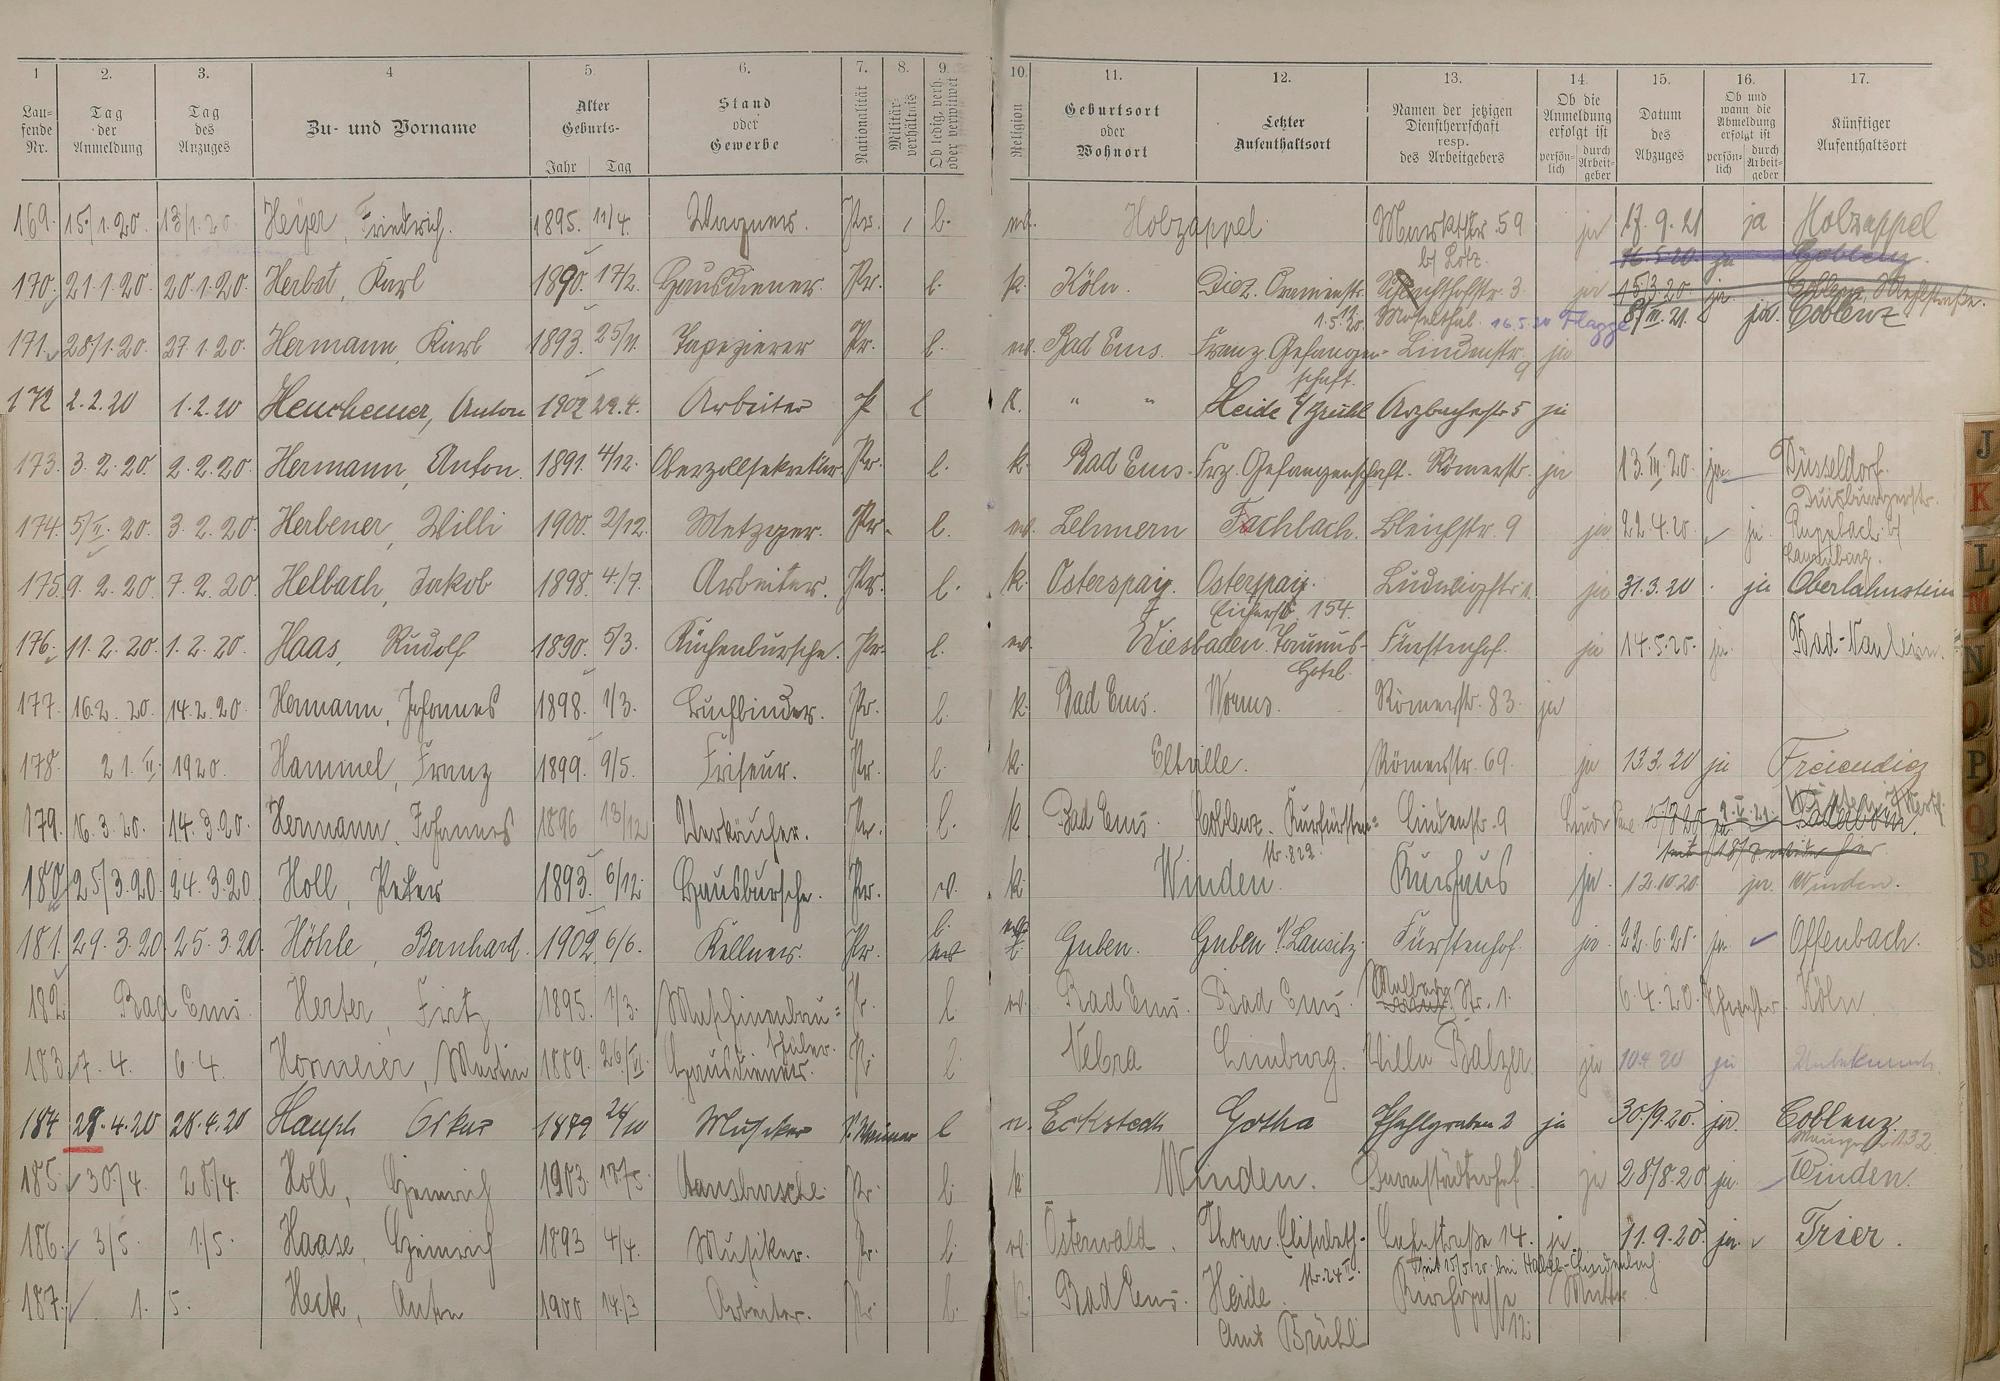 1 2. 3. 4 5. 6. 7. 8. 9. 10. 11. 12. 13. 14. 15. 16. 17.
Laufende Nr. Tag der Anmeldung Tag des Anzuges Zu- und Vorname Alter Geburts- Jahr Tag Stand oder Gewerbe Nationalität Militärverhältnis Ob ledig, verh. oder verwitwet Religion Geburtsort oder Wohnort Letzter Aufenthaltsort Namen der jetzigen Dienstherrschaft resp. des Arbeitgebers Ob die Anmeldung erfolgt ist persönlich durch Arbeitgeber Datum des Abzuges Ob und wann die Abmeldung erfolgt ist persönlich durch Arbeitgeber Künftiger Aufenthaltsort
169. 15./1.20. 13/1.20. Heyer, Friedrich. 1895. 11/4. Wagner. Pr. l. ev. Holzappel Marktstr. 59 ja 17.9.21 ja Holzappel
b/ Lotz. 16.5.20 ja Coblenz.
170. 21.1.20. 20.1.20. Herbst, Karl 1890. 17/2. Hausdiener. Pr. l. k. Köln. Diez. Oranienstr. 3 ja 15.3.20 ja Coblenz,
1.5.20. Moselthal. 16.5.20 Flagge 8/III.21. ja. Coblenz
171. 28/1.20. 27.1.20. Hermann, Karl 1893. 25/11. Tapezierer Pr. l. ev. Bad Ems. Franz. Gefangen- Lindenstr. 9 ja
schaft.
172 2.2.20 1.2.20 Anton 1902 29.4. Arbeiter P l K. " " Heide b/ Brühl Arzbacherstr 5 ja
173. 3.2.20. 2.2.20. Hermann, Anton. 1891. 4/12. Oberzollsekretär. Pr. l. k. Bad Ems. Frz. Gefangenschaft. Römerstr. ja 13.III.20. ja Düsseldorf.
Duisburgerstr.
174. 5/II.20. 3.2.20. Herbener, Willi 1900. 2/12. Metzger. Pr. l. ev. Fachbach. Bleichstr. 9 ja 22.4.20. ja Rupbach b/
Laurenburg.
175. 9.2.20. 7.2.20. Helbach, Jakob 1898. 4/7. Arbeiter. Pr. l. k. Osterspay. Osterspay. Ludwigstr. ja 31.3.20. ja Oberlahnstein
154.
176. 11.2.20. 1.2.20. Haas, Rudolf 1890. 5/3. Küchenbursche. Pr. l. ev. Wiesbaden. Taunus- Fürstenhof. ja 14.5.20. ja Bad-Nauheim.
Hotel.
177. 16.2.20. 14.2.20. Hermann, Johannes 1898. 1/3. Buchbinder. Pr. l. k. Bad Ems. Worms. Römerstr. 83. ja
178. 21.II.1920. Hammel, Franz 1899. 9/5. Friseur. Pr. l. k. Eltville. Römerstr. 69. ja 13.3.20 ja Freiendiez
179. 16.3.20. 14.3.20. Hermann, Johannes 1896 13/12 Verkäufer. Pr. l. k Bad Ems. Coblenz. Kurfürsten- Lindenstr. 9 Paderborn.
str. 82
180. 25/3.20 24.3.20 Holl, Peter 1893. 6/12. Hausbursche. Pr. v. k. Winden. Kurhaus ja. 12.10.20. ja. Winden.
181. 29.3.20. 25.3.20. Höhle, Bernhard. 1902 6/6. Kellner. Pr. l. Guben. Guben i/ Lausitz. Fürstenhof ja. 22.6.20. ja Offenbach.
182. Bad Ems. Herber, Fritz 1895. 1/3. Maschinenbau- Pr. l. ev. Bad Ems. Bad Ems. Str. 1. 6.4.20. Köln.
schüler.
183 7.4. 6.4. Hormeier, Martin 1889. 26/VI. Hausdiener. Pr. l. Nebra Limburg. Villa Balzer ja 10.4.20 ja Unbekannt.
184 28.4.20 28.4.20 Haupt Oskar 1879 24/10 Musiker S. Weimar l Eckstedt Gotha Pfahlgraben 2 ja 30./9.20. ja. Coblenz.
132
185. 30./4. 28./4. Holl, Heinrich 1903. 18./5 Hausbursche. Pr. l. k. Winden. Darmstädterhof. ja 28/8.20 ja. Winden.
186. 3/5. 1/5. Haase, Heinrich 1893 4/4. Musiker. Pr. l. ev. Osterwald. Thorn. Elisabeth- Lahnstraße 14. ja. 11.9.20. ja. Trier.
str. 24 II.
187. 1. 5. Heck, Anton 1900 14./3 Arbeiter. Pr. l. k. Bad Ems. Heide. Kirchgasse Mutter
Amt Brühl 12.
J
K
L
M
N
O
P
Q
R
S
Sch